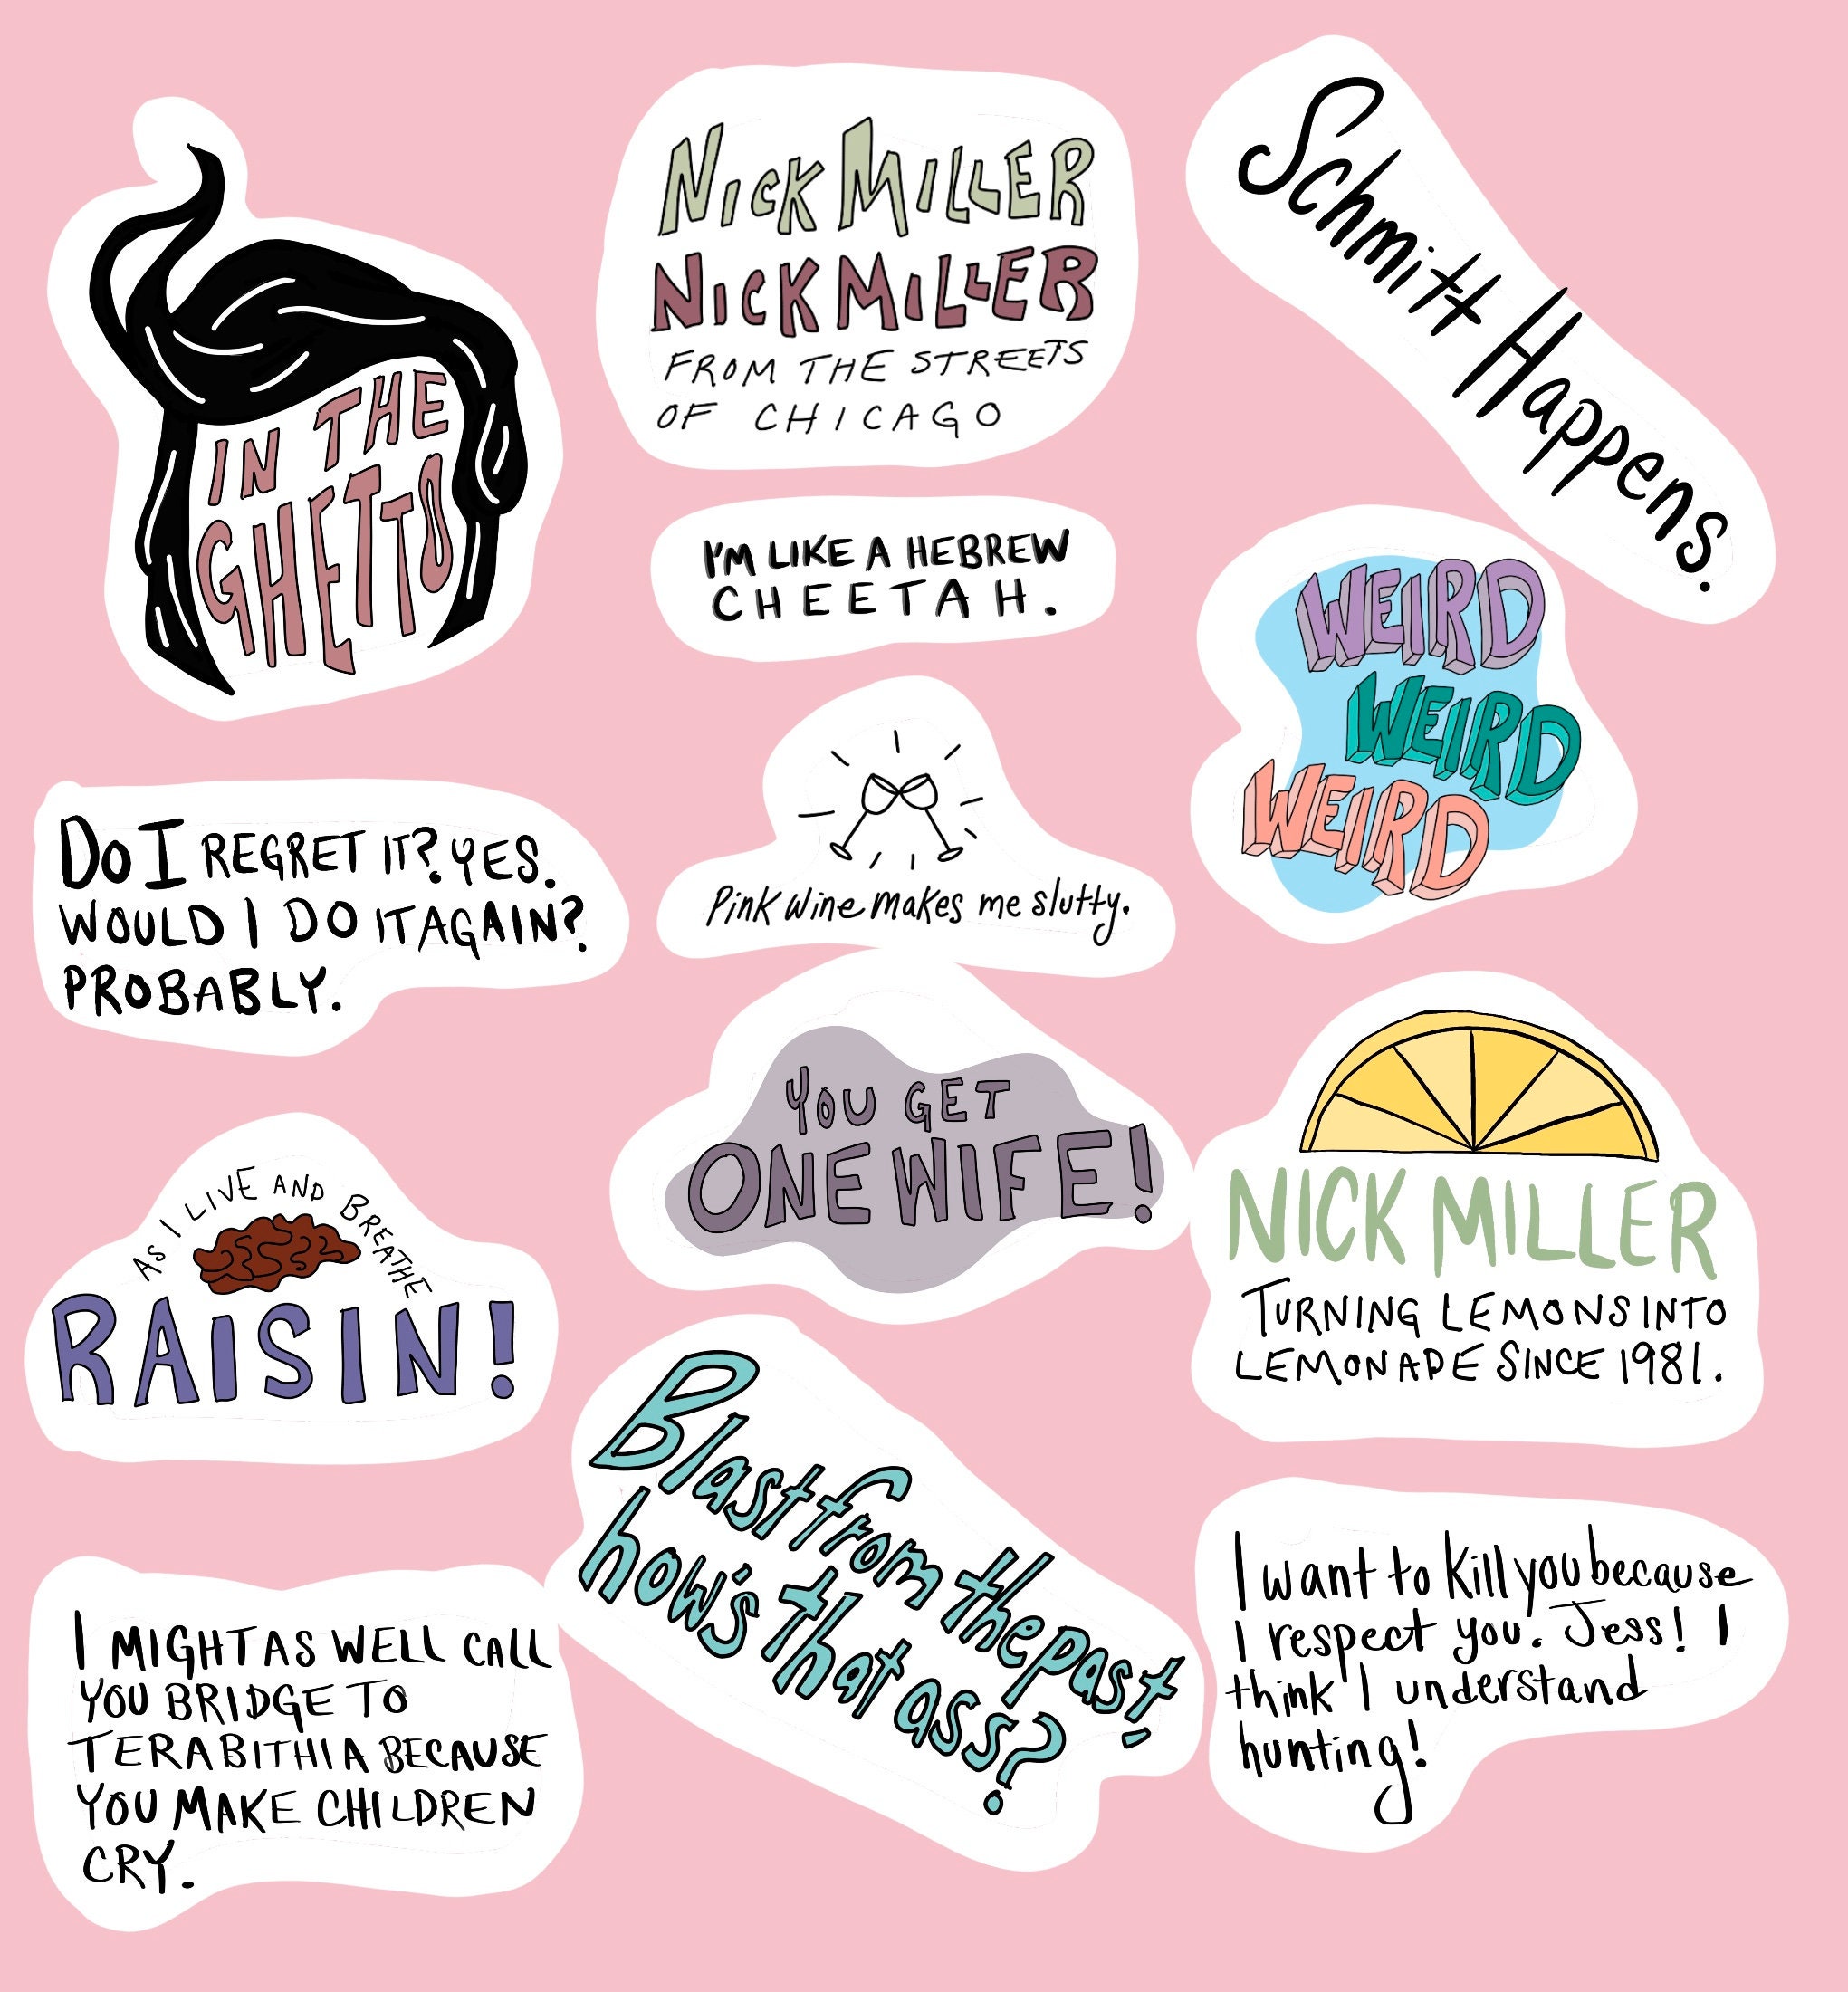 IN THE
GHETTO
NICK MILLER
NICK MILLER
FROM THE STREETS
OF CHICAGO
Schmitt Happens.
I'M LIKE A HEBREW
CHEETAH.
WEIRD
WEIRD
WEIRD
DO I REGRET IT? YES.
WOULD I DO IT AGAIN?
PROBABLY.
Pink Wine makes me slutty.
YOU GET
ONE WIFE!
NICK MILLER
TURNING LEMONS INTO
LEMONADE SINCE 1981.
AS I LIVE AND BREATHE
RAISIN!
Blast from the past,
how's that ass?
I MIGHT AS WELL CALL
YOU BRIDGE TO
TERABITHIA BECAUSE
YOU MAKE CHILDREN
CRY.
I want to kill you because
I respect you. Jess! I
think I understand
hunting!